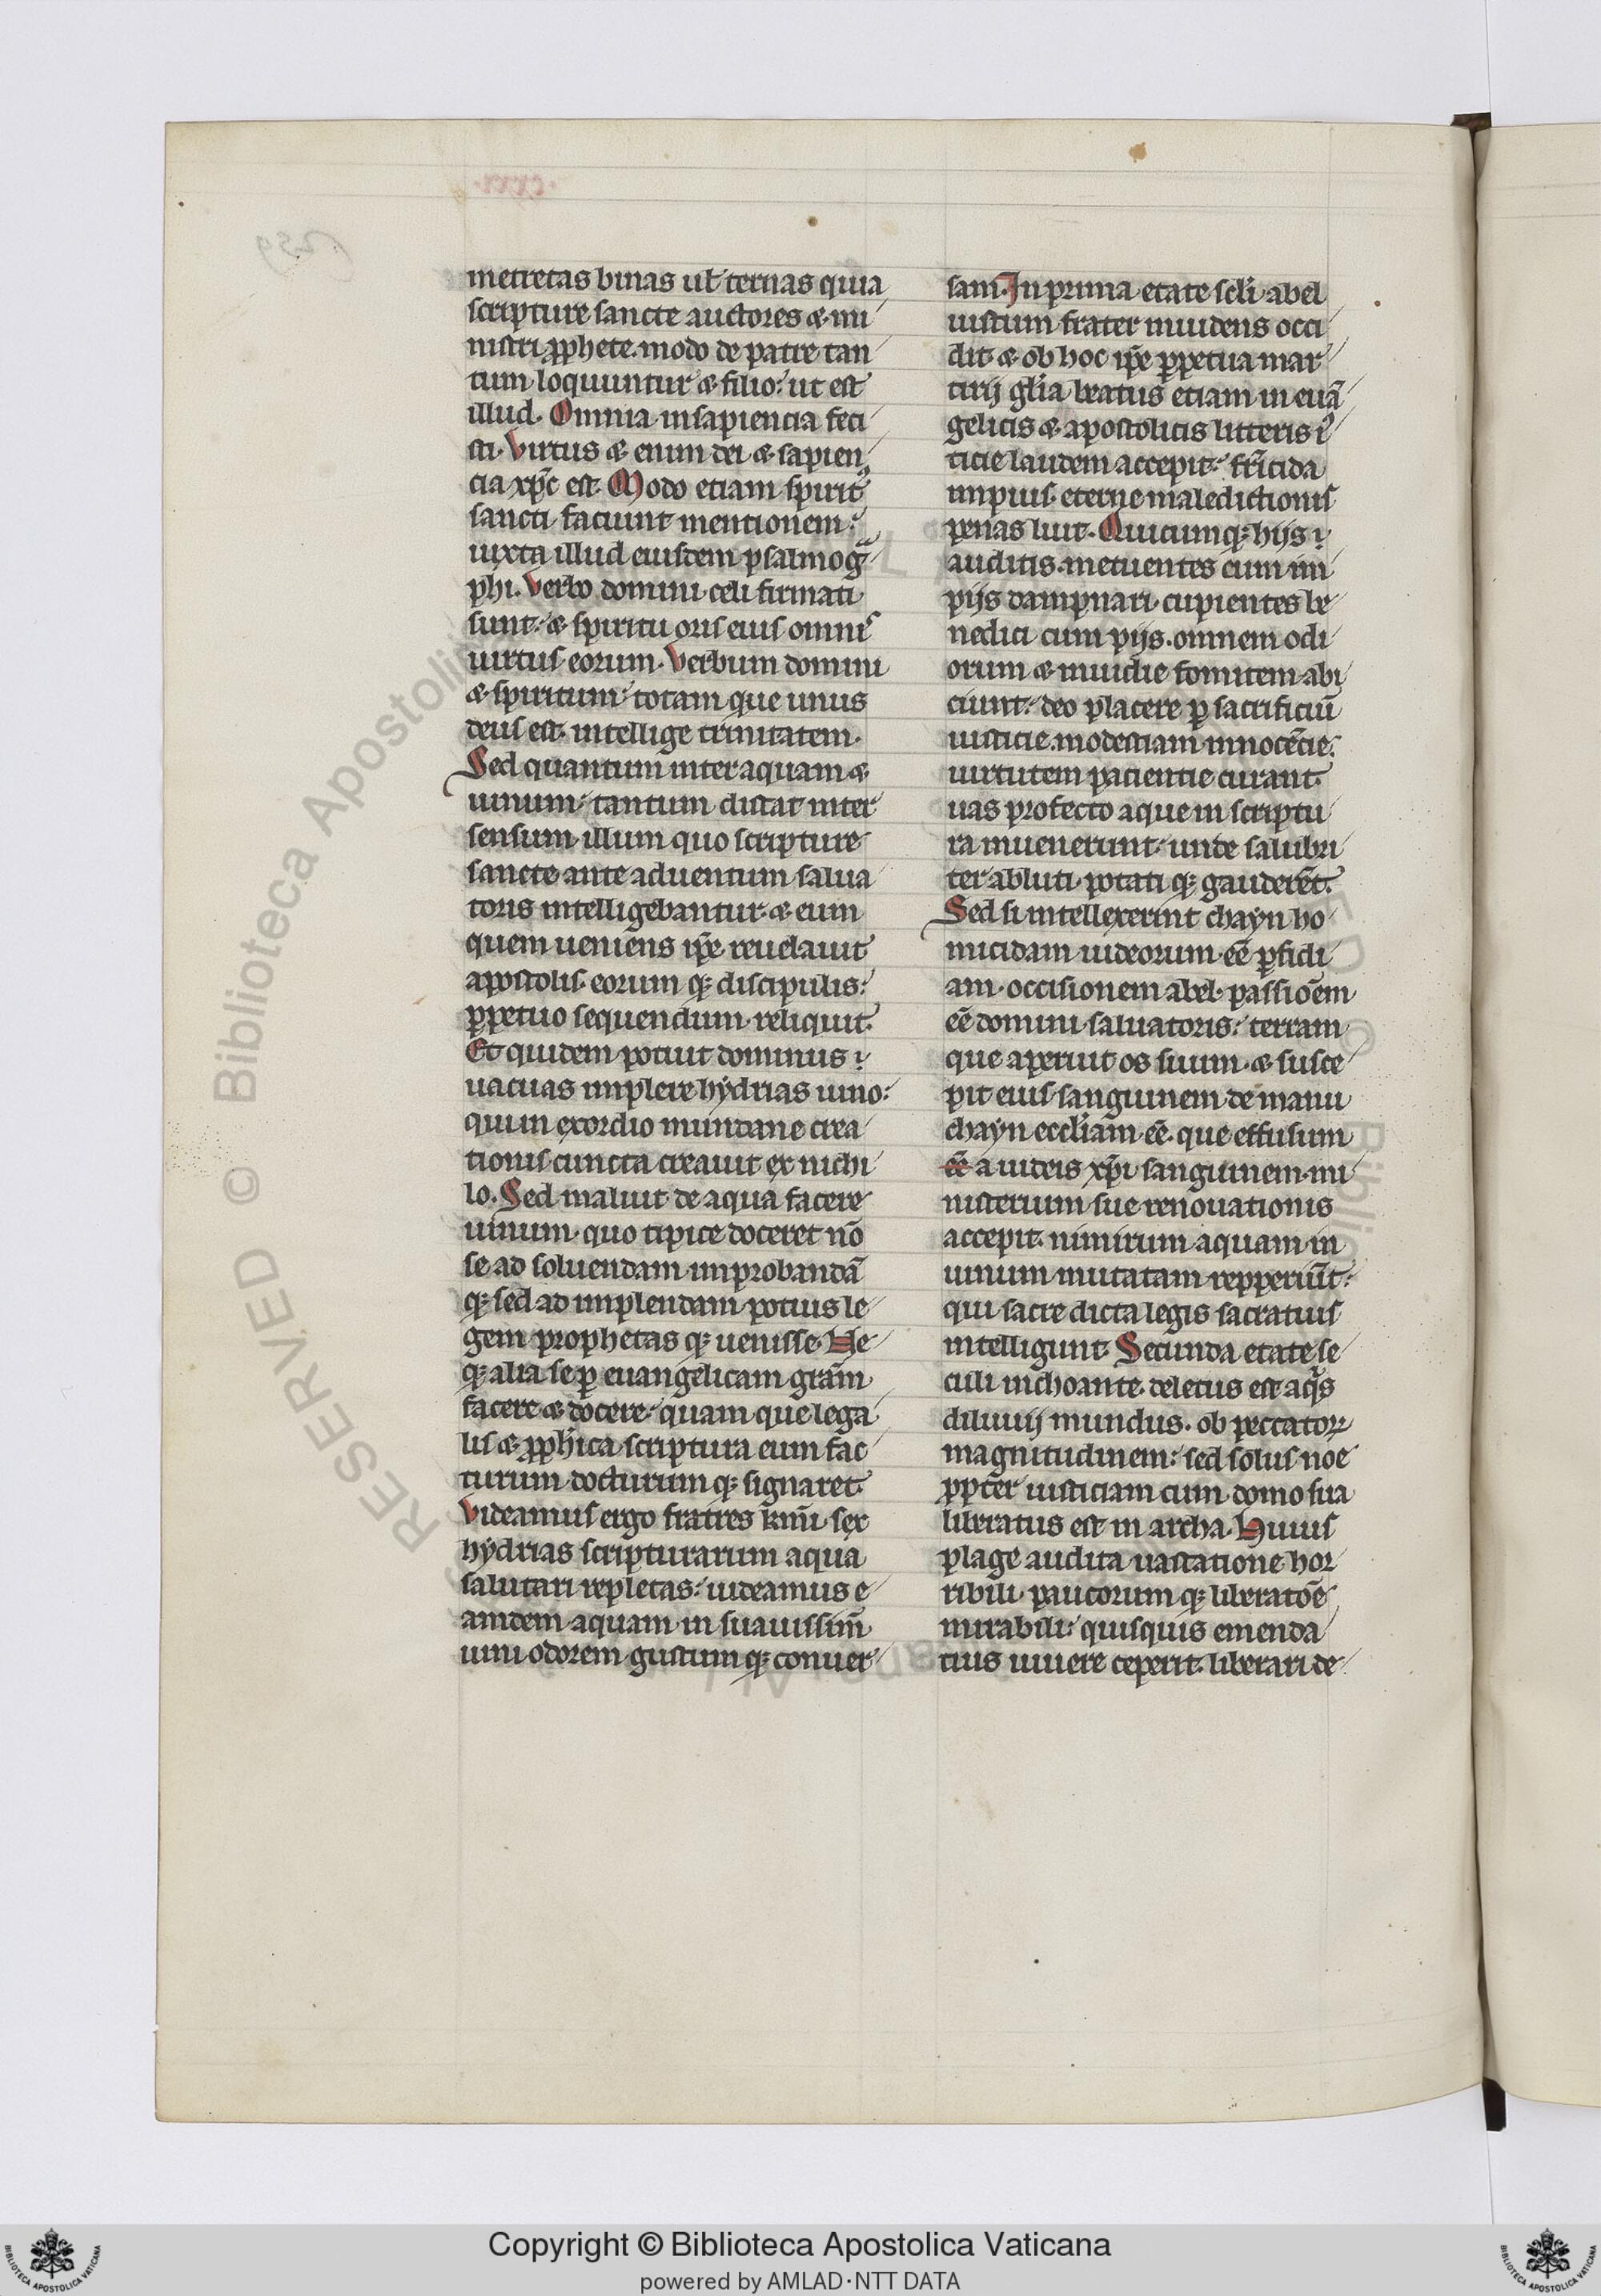 metretas binas ul' ternas quia
scripture sancte auctores & mi
nistri ꝓphete. modo de patre tan
tum loquuntur & filio: ut est
illud. Omnia in sapiencia feci
sti. Virtus & enim dei & sapien
cia xp̄c est. Modo etiam spiritꝰ
sancti faciunt mentionem:
iuxta illud eiusdem psalmogͣ
phi. Verbo domini celi firmati
sunt: & spiritu oris eius omnis
uirtus eorum. Verbum domini
& spiritum: totam que unus
deus est. intellige trinitatem.
Sed quantum inter aquam &
uinum: tantum distat inter
sensum illum quo scripture
sancte ante aduentum salua
toris intelligebantur. & eum
quem ueniens ip̄e reuelauit
apostolis. eorum qꝫ discipulis:
ꝑpetuo sequendum reliquit.
Et quidem potuit dominus
uacuas implere hydrias uino:
qui in exordio mundane crea
tionis cuncta creauit ex nichi
lo. Sed maluit de aqua facere
uinum. quo tipice doceret nō
se ad soluendam improbandā
qꝫ sed ad implendam potius le
gem prophetas qꝫ uenisse. Ne
qꝫ alia se ꝑ euangelicam grām
facere & docere: quam que lega
lis & ꝓph'ica scriptura eum fac
turum docturum qꝫ signaret.
Videamus ergo fratres km̄i sex
hydrias scripturarum aqua
salutari repletas: uideamus e
amdem aquam in suauissim̄
uini odorem gustum qꝫ conuer
sam. In prima etate scl̄i abel
iustum frater inuidens occi
dit. & ob hoc ip̄e ꝑpetua mar
tirij gl̄ia beatus etiam in euā
gelicis & apostolicis litteris iꝰ
ticie laudem accepit: fr̄icida
impius. eterne maledictionis
penas luit. Quicumqꝫ hijs
auditis. metuentes cum im
pijs dampnari. cupientes be
nedici cum pijs. omnem odi
orum & inuidie fomitem abi
ciunt: deo placere ꝑ sacrificiū
iusticie. modestiam innocētie.
uirtutem pacientie curant.
uas profecto aque in scriptu
ra inuenerunt: unde salubri
ter abluti. potati qꝫ gauderēt.
Sed si intellexerint chayn ho
micidam iudeorum eē ꝑfidi
am. occisionem abel. passiōem
eē domini saluatoris: terram
que aperuit os suum. & susce
pit eius sanguinem de manu
chayn eccl'iam eē. que effusum
eē a iudeis xp̄i sanguinem. mi
nisterium sue renouationis
accepit. nimirum aquam in
uinum mutatam repperiūt:
qui sacre dicta legis sacratius
intelligunt. Secunda etate se
culi inchoante. deletus est aqͥs
diluuij mundus. ob peccatoꝝ
magnitudinem: sed solus noe
ꝓpter iusticiam cum domo sua
liberatus est in archa. Huius
plage audita uastatione hor
ribili. paucorum qꝫ liberatōe
mirabili: quisquis emenda
tius uiuere ceperit. liberari de
RESERVED © Biblioteca Apostolica
Copyright © Biblioteca Apostolica Vaticana
powered by AMLAD·NTT DATA